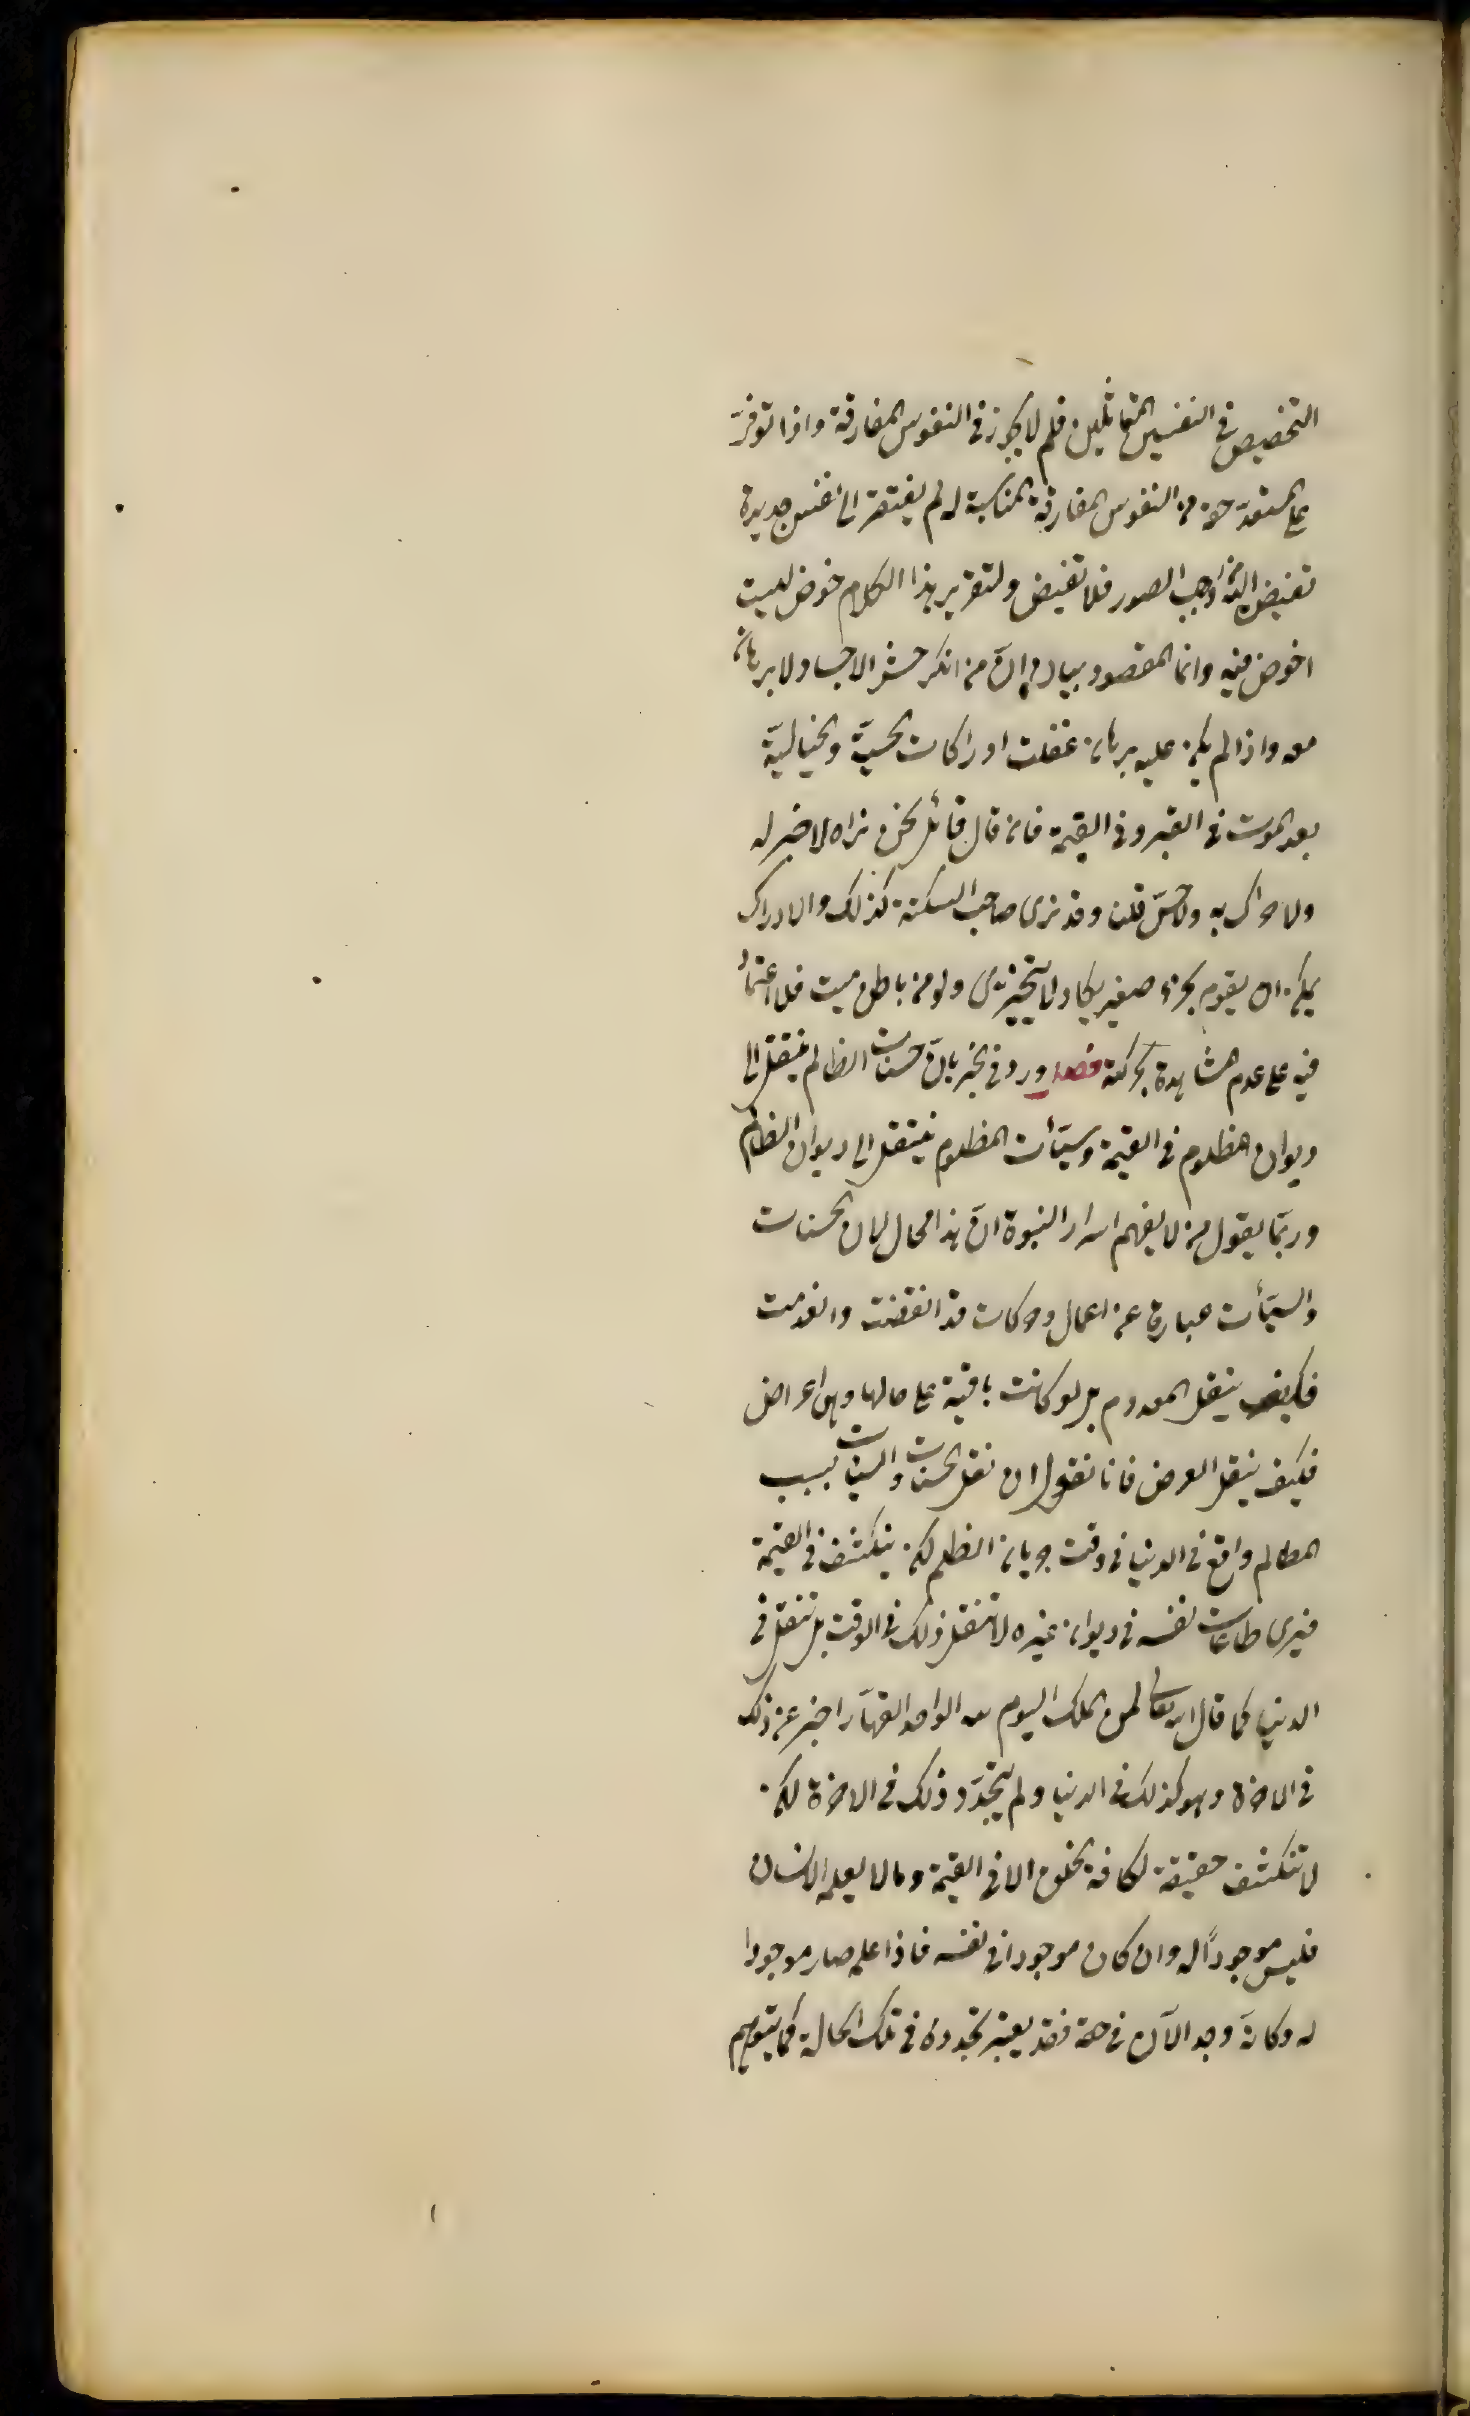 التخصيص فی النفسين المتماثلين فلم لا يجوز فی النفوس المفارقة واذا توفر
علی المستعد حقه من النفوس المفارقة المناسبة له لم يفتقر الی نفس جديدة
تفيض واهب الصور فلا تفيض ولتقرير هذا الكلام خوض لست
اخوض فيه وانما المقصود بيان ان من انكر حشر الاجساد لا برهان
معه واذا لم يكن عليه برهان عقلت ادراكات الحسيّة والخيالية
بعد الموت فی القبر وفی القيمة فان قال قائل نحن نراه لا خبر له
ولا حراك به ولا حسّ قلنا وقد نری صاحب السكتة كذلك والادراك
يمكن ان يقوم بجزء صغير يكاد لا يتجزی ولو من باطن ميت فلا اعتماد
فيه علی عدم المشاهدة بحركته فصل ورد فی الخبر بانّ حسنات الظالم ينتقل الی
ديوان المظلوم فی القيمة وسيّأت المظلوم ينتقل الی ديوان الظالم
وربّما يقول من لا يفهم اسرار النبوة انّ هذا محال لان الحسنات
والسيّأت عبارة عن اعمال وحركات قد انقضت وانعدمت
فكيف ينتقل المعدوم بل لو كانت باقية علی حالها وهی اعراض
فكيف ينتقل العرض فانا نقول ان نقل الحسنات والسيئات بسبب
المظالم واقع فی الدنيا فی وقت جريان الظلم لكن ينكشف فی القيمة
فيری طاعات نفسه فی ديوان غيره لا تنتقل ذلك فی الوقت بل تنتقل فی
الدنيا كما قال الله تعالی لمن الملك اليوم لله الواحد القهّار اخبر عن ذلك
فی الاخرة وهو كذلك فی الدنيا ولم يتجدّد ذلك فی الاخرة لكن
لا تنكشف حقيقة لكافة الخلق الا فی القيمة وما لا يعلمه الانسان
فليس موجوداً له وان كان موجودا فی نفسه فاذا علمه صار موجودا
له وكانّه وجد الآن فی حقه فقد يعتبر تجدده فی تلك الحالة كما يتوهم